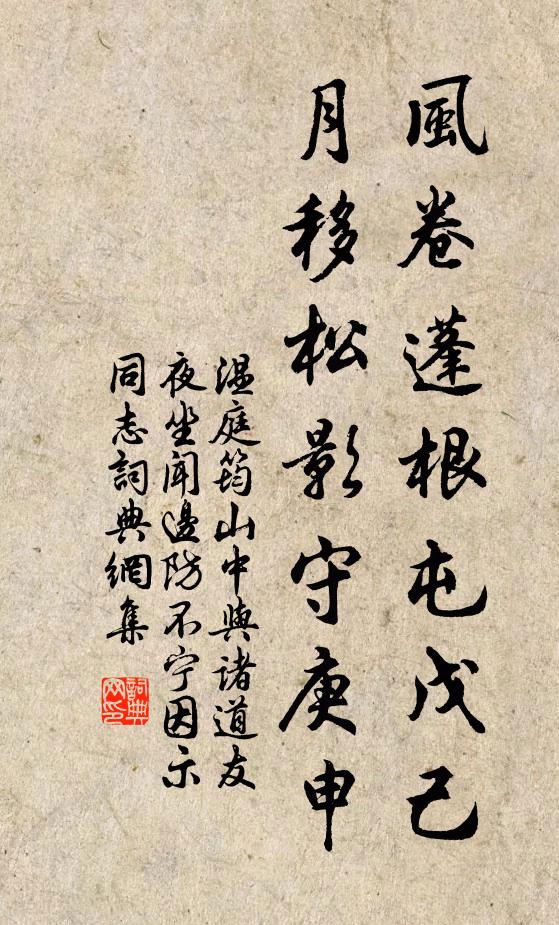 風卷蓬根屯戊己
月移松影守庚申
温庭筠山中與諸道友
夜坐聞邊防不宁因示
同志詞典網集
詞典
网印